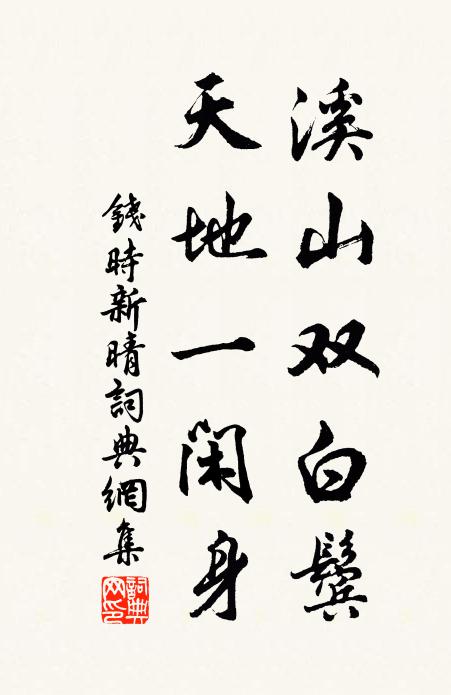 溪山双白鬓
天地一闲身
錢時新晴詞典網集
詞典网印